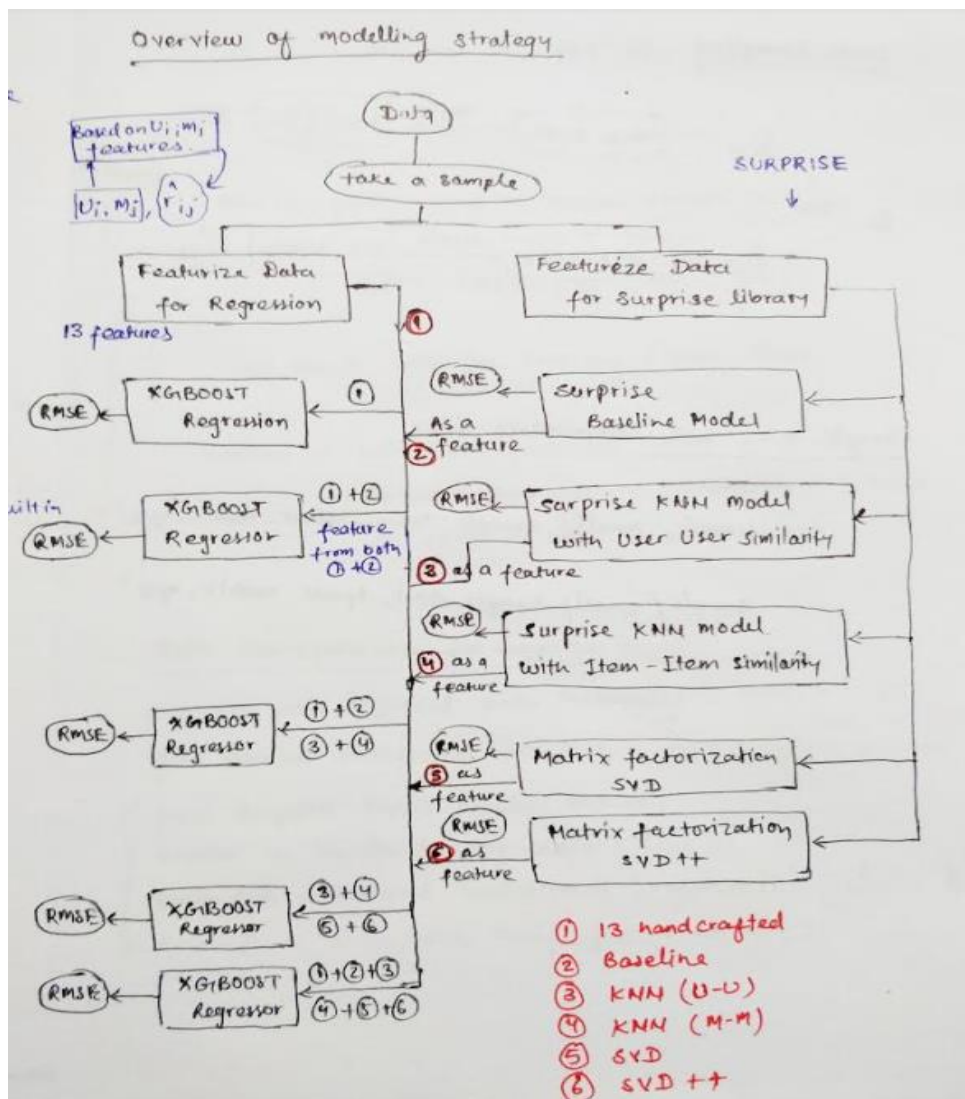 Overview of modelling strategy
Data
take a sample
Based on Ui, mj
features.
Ui, Mj, r̂ij
SURPRISE
↓
Featurize Data
for Regression
13 features
Featureze Data
for Surprise library
①
RMSE
XGBOOST
Regression
①
RMSE
Surprise
Baseline Model
As a
② feature
uilt in
RMSE
XGBOOST
Regressor
① + ②
feature
from both
① + ②
RMSE
Surprise KNN model
with User User Similarity
③ as a feature
RMSE
Surprise KNN model
with Item - Item similarity
④ as a
feature
RMSE
XGBOOST
Regressor
① + ②
③ + ④
RMSE
Matrix factorization
SVD
⑤ as
feature
RMSE
Matrix factorization
SVD ++
⑥ as
feature
RMSE
XGBOOST
Regressor
③ + ④
⑤ + ⑥
RMSE
XGBOOST
Regressor
① + ② + ③
④ + ⑤ + ⑥
① 13 handcrafted
② Baseline
③ KNN (U-U)
④ KNN (M-M)
⑤ SVD
⑥ SVD ++